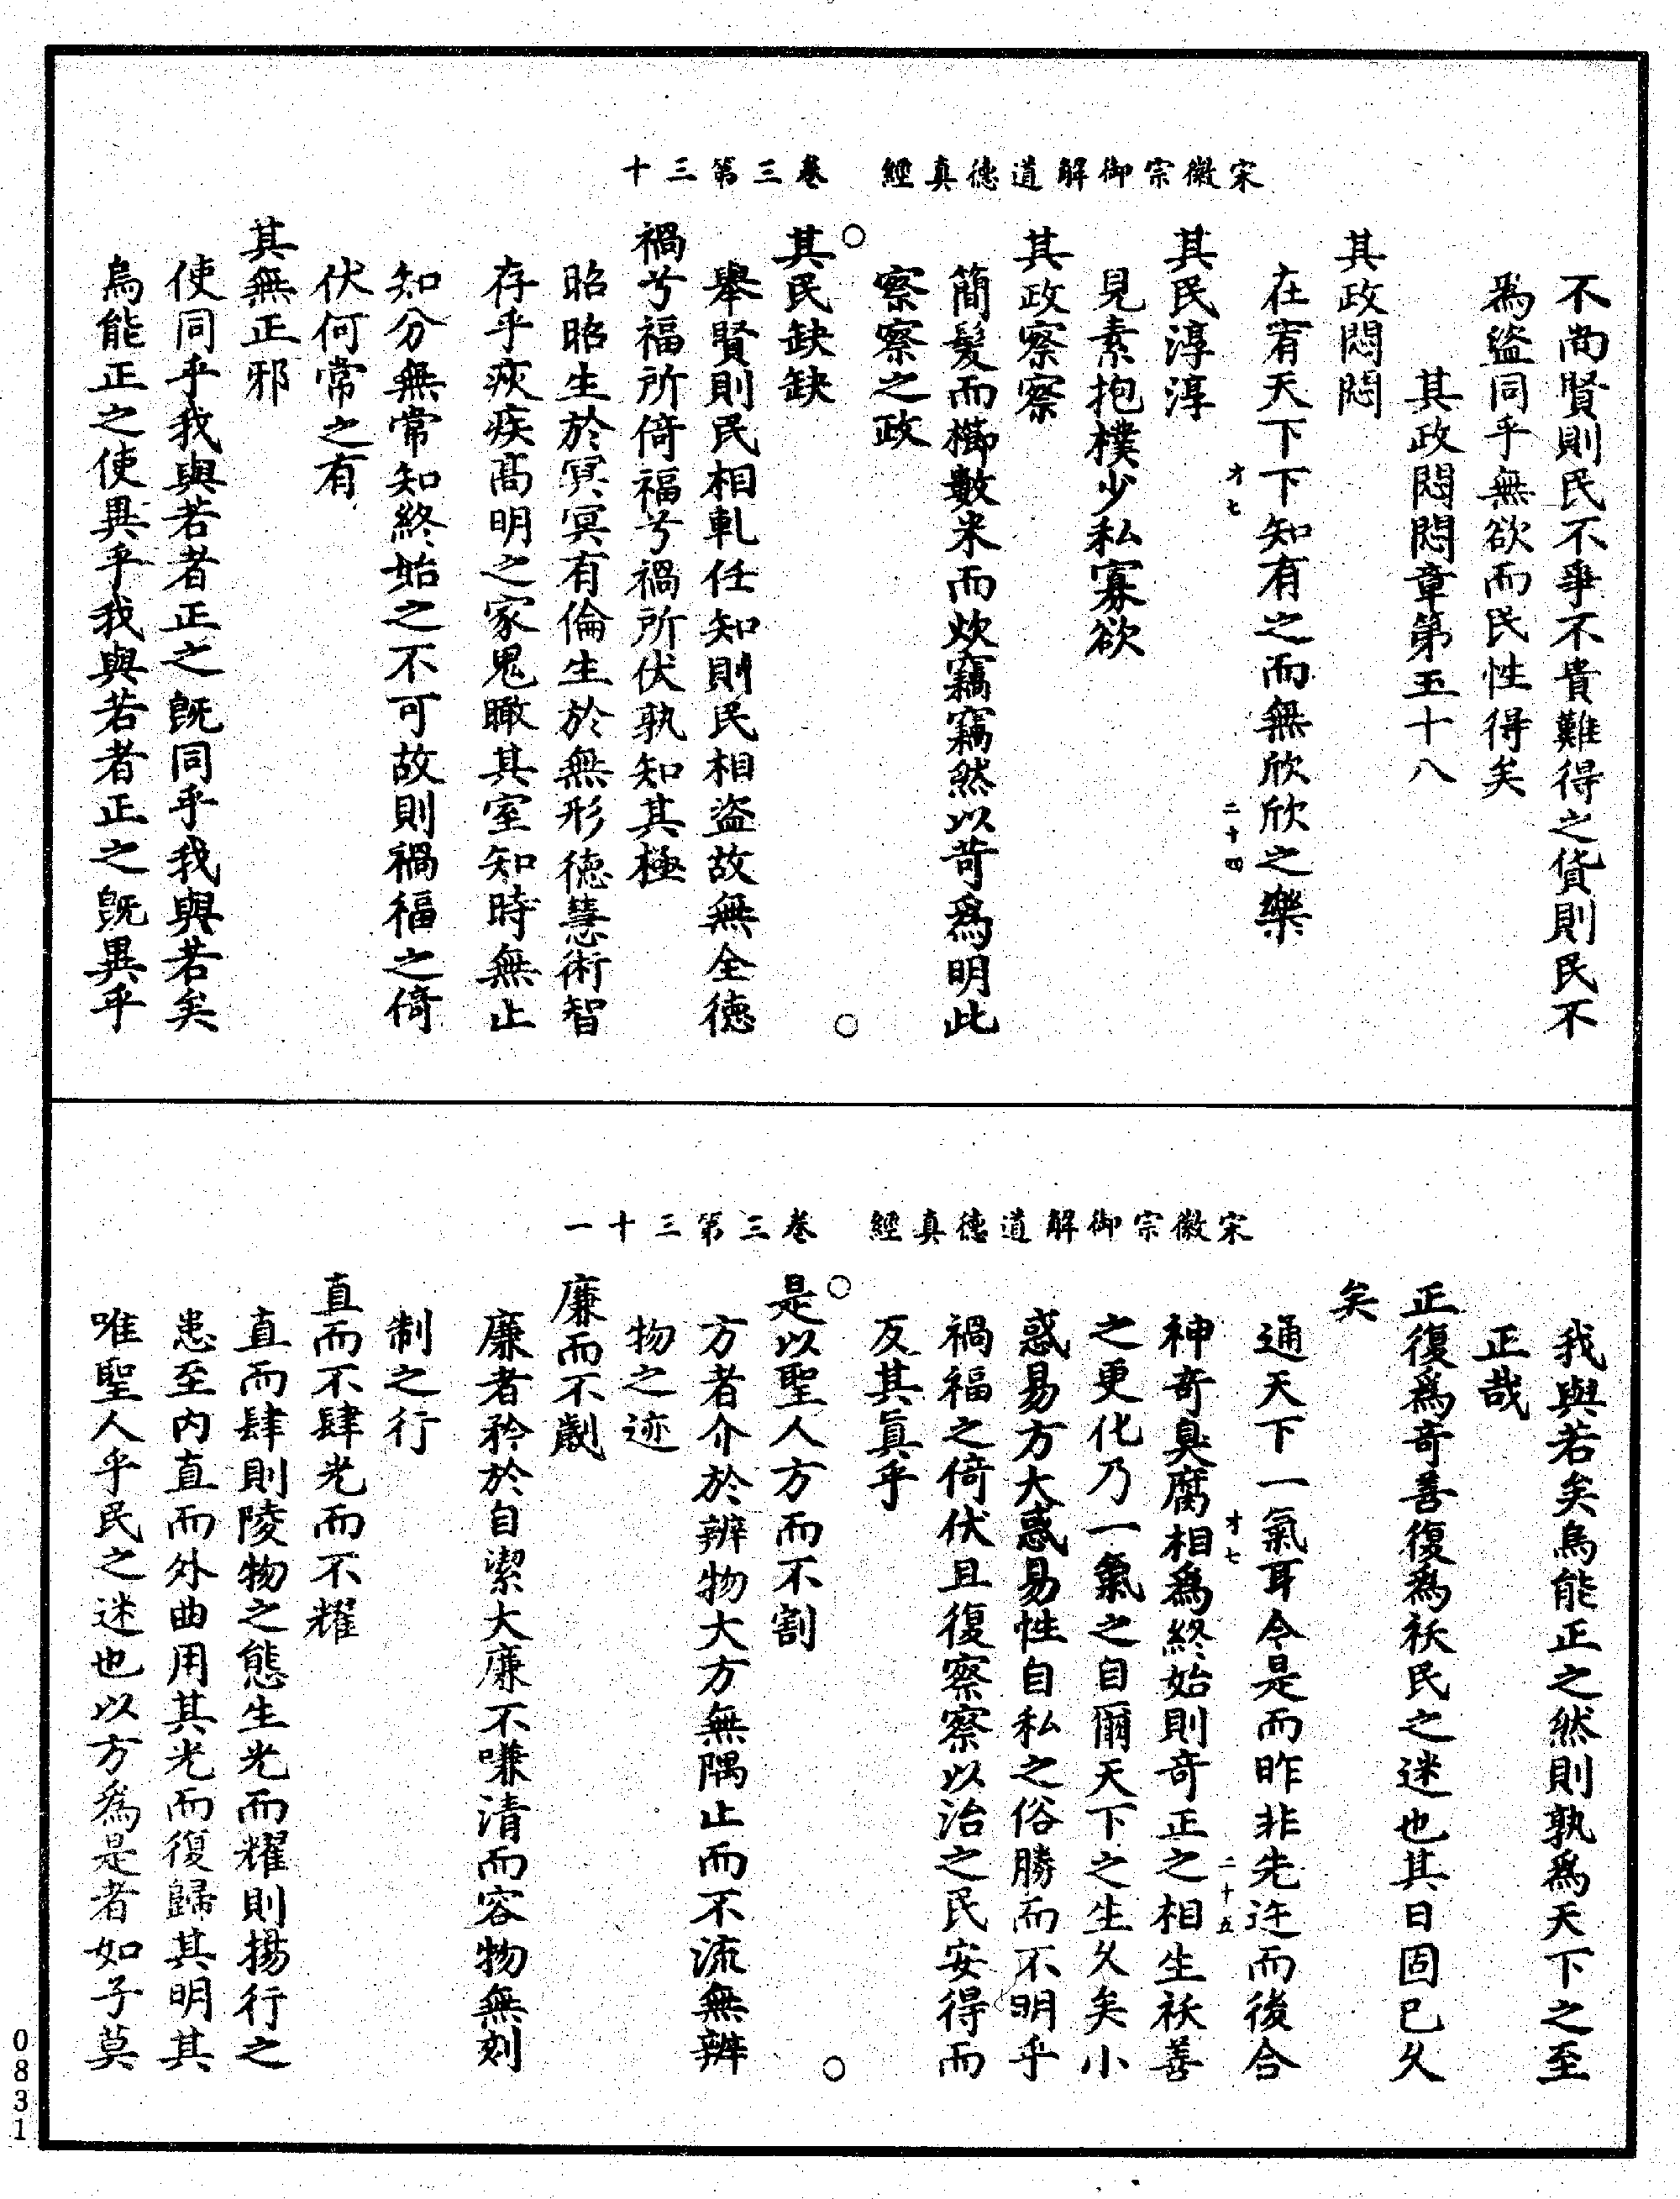 宋徽宗御解道德真經　卷三第三十
不尚賢則民不爭不貴難得之貨則民不
爲盜同乎無欲而民性得矣
其政悶悶章第五十八
其政悶悶
在宥天下下知有之而無欣欣之樂
才七　二十四
其民淳淳
見素抱樸少私寡欲
其政察察
簡髮而櫛數米而炊竊竊然以苛爲明此
察察之政
○　○
其民缺缺
舉賢則民相軋任知則民相盜故無全德
禍兮福所倚福兮禍所伏孰知其極
昭昭生於冥冥有倫生於無形德慧術智
存乎疢疾高明之家鬼瞰其室知時無止
知分無常知終始之不可故則禍福之倚
伏何常之有
其無正邪
使同乎我與若者正之既同乎我與若矣
烏能正之使異乎我與若者正之既異乎
宋徽宗御解道德真經　卷三第三十一
我與若矣烏能正之然則孰爲天下之至
正哉
正復爲奇善復爲祅民之迷也其日固已久
矣
通天下一氣耳今是而昨非先迕而後合
才七　二十五
神奇臭腐相爲終始則奇正之相生祅善
之更化乃一氣之自爾天下之生久矣小
惑易方大惑易性自私之俗勝而不明乎
禍福之倚伏且復察察以治之民安得而
反其眞乎
○　○
是以聖人方而不割
方者介於辨物大方無隅止而不流無辨
物之迹
廉而不劌
廉者矜於自潔大廉不嗛清而容物無刻
制之行
直而不肆光而不耀
直而肆則陵物之態生光而耀則揚行之
患至內直而外曲用其光而復歸其明其
唯聖人乎民之迷也以方爲是者如子莫
0831